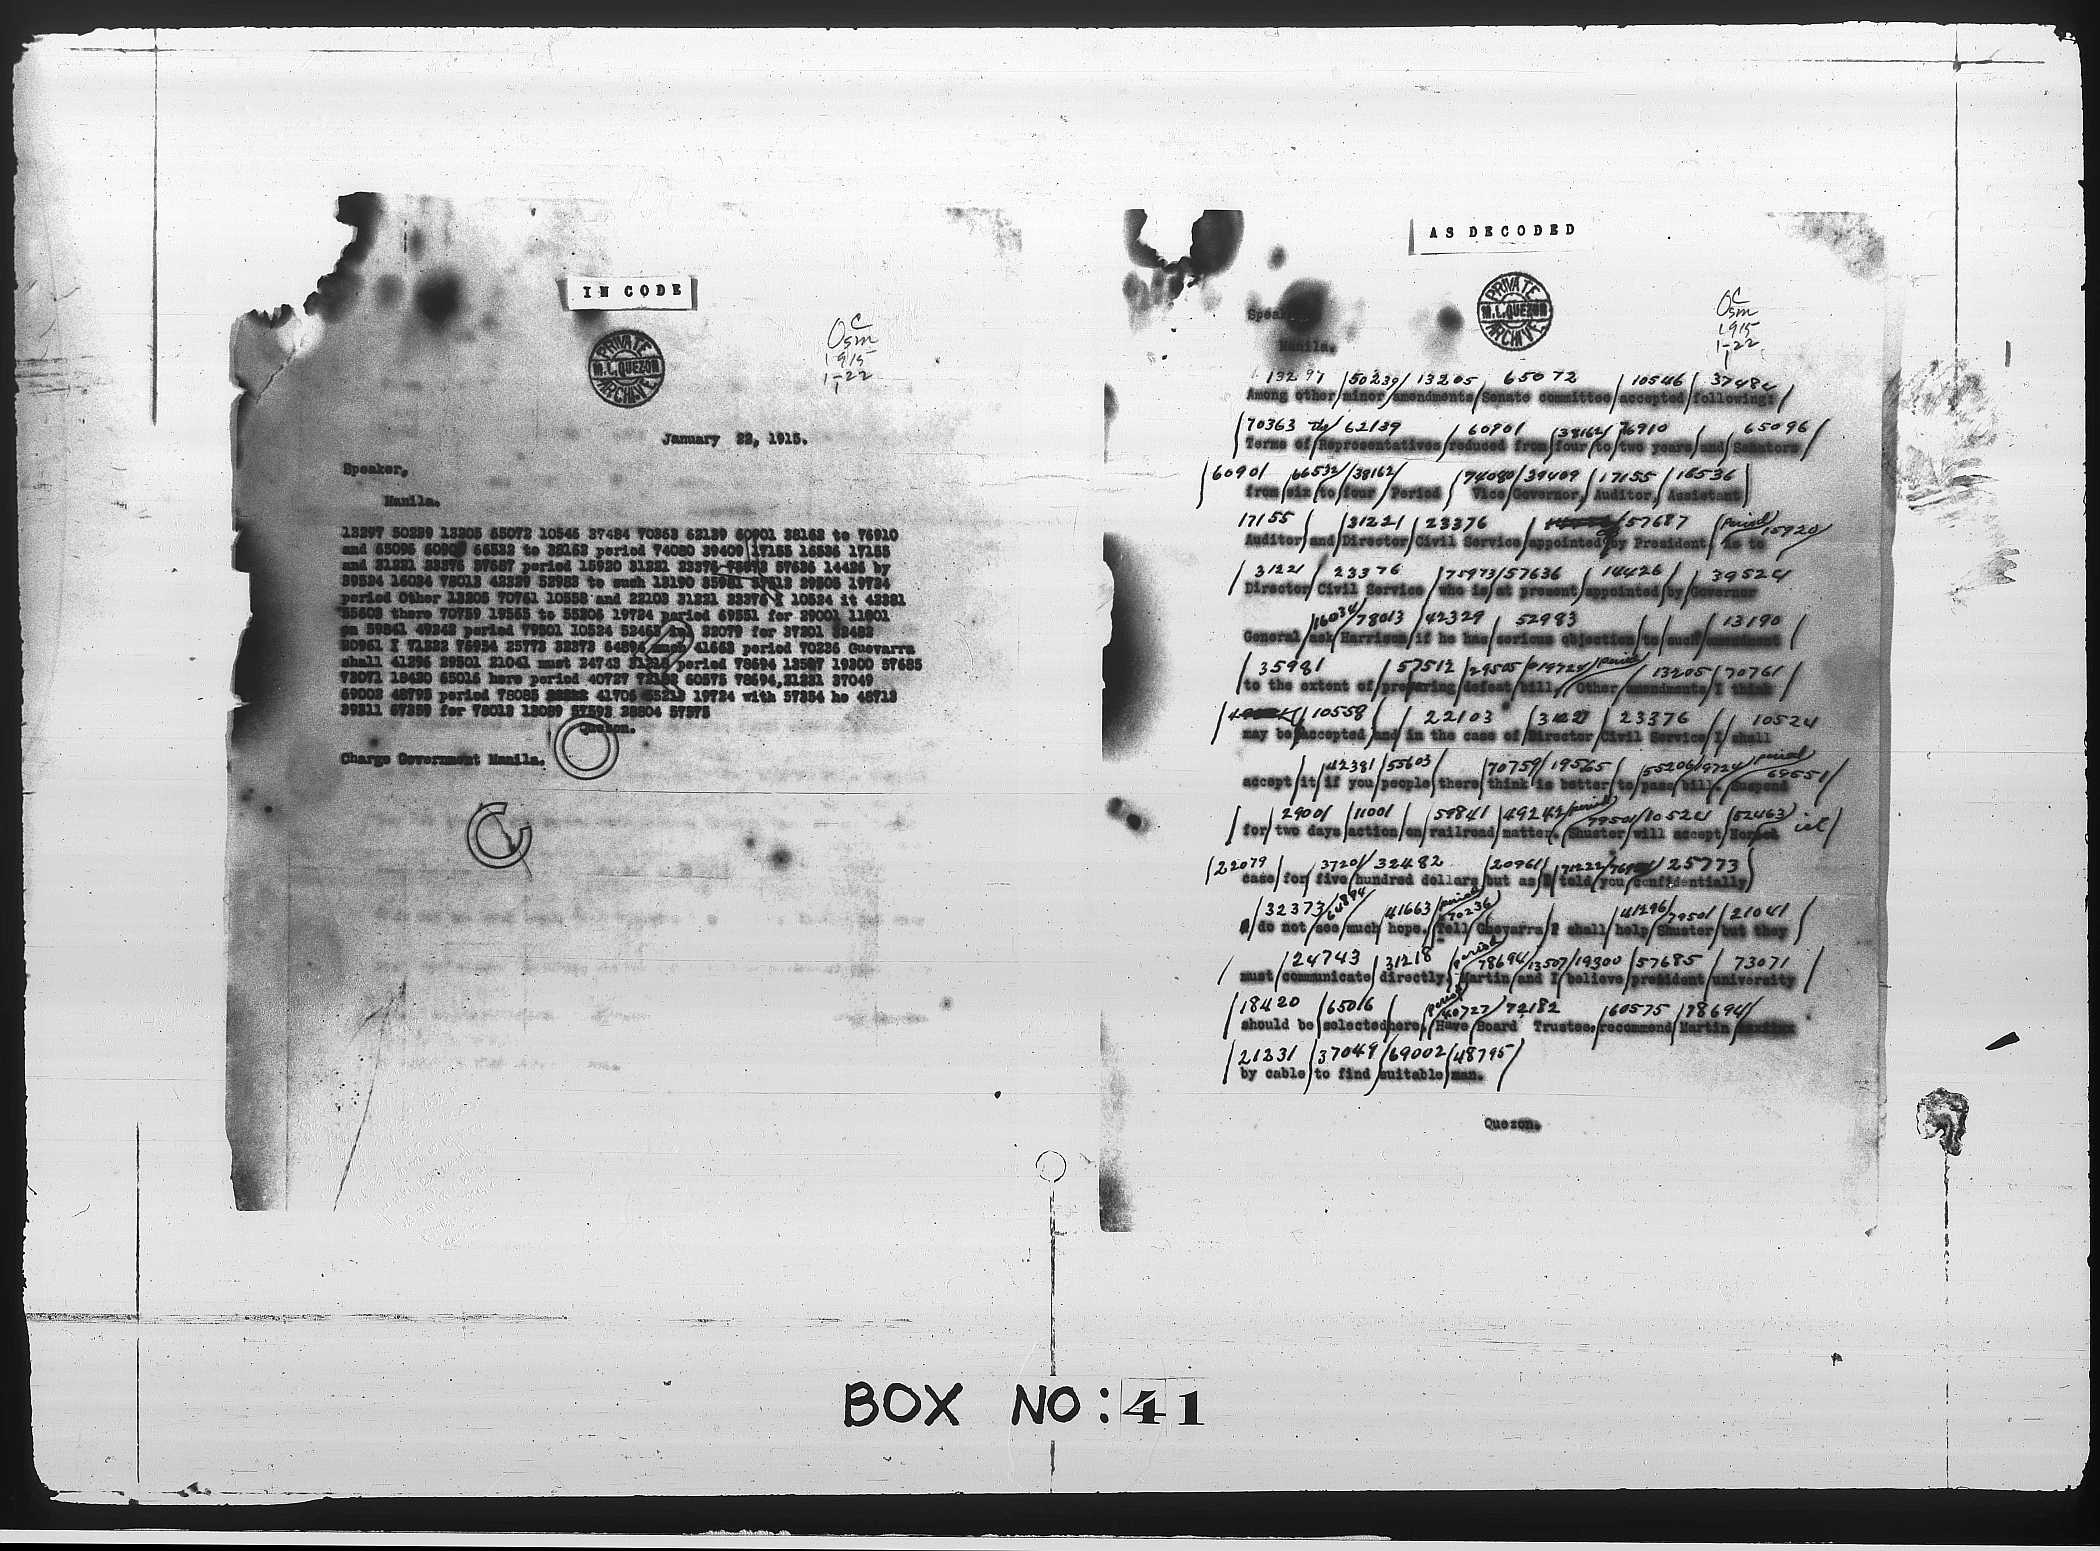 IN CODE
PRIVATE
M.L. QUEZON
ARCHIVE
Osm
1915
1-22
January 22, 1915.
Speaker,
Manila.
13297 50239 13205 65072 10546 37484 70363 62139 60901 38162 to 76910
and 65096 60901 66532 to 38162 period 74080 39409 17155 16536 17155
and 31221 23376 57687 period 15920 31221 23376 75973 57636 14426 by
39524 16034 78013 42329 52983 to such 13190 35981 57512 29505 19724
period Other 13205 70761 10558 and 22103 31221 23376 I 10524 it 42381
55603 there 70759 19565 to 55206 19724 period 69551 for 29001 11001
on 59841 49242 period 79501 10524 52463 22079 for 37201 32482
20961 I 71222 76954 25773 32373 64894 much 41663 period 70236 Guevarra
shall 41296 79501 21041 must 24743 31218 period 78694 13507 19300 57685
73071 18420 65016 here period 40727 72182 60575 78694, 21231 37049
69002 48795 period 78085 41706 55213 19724 with 57354 he 48713
39311 67359 for 78013 13089 57593 28804 57375
Quezon.
Charge Government Manila.
AS DECODED
PRIVATE
M.L. QUEZON
ARCHIVE
Osm
1915
1-22
Manila.
13297 50239 13205 65072 10546 37484
Among other minor amendments Senate committee accepted following:
70363 62139 60901 38162 76910 65096
Terms of Representatives reduced from four to two years and Senators
60901 66532 38162 74080 39409 17155 16536
from six to four Period Vice Governor, Auditor, Assistant
17155 31221 23376 57687 period 15920
Auditor and Director Civil Service appointed by President is to
31221 23376 75973 57636 14426 39524
Director Civil Service who is at present appointed by Governor
16034 78013 42329 52983 13190
General ask Harrison if he has serious objection to such amendment
35981 57512 29505 19724 period 13205 70761
to the extent of preparing defeat bill. Other amendments I think
10558 22103 31221 23376 10524
may be accepted and in the case of Director Civil Service I shall
42381 55603 70759 19565 55206 19724 period 69551
accept it if you people there think is better to pass bill. Suspend
29001 11001 59841 49242 period 79501 10524 52463
for two days action on railroad matter. Shuster will accept
22079 37201 32482 20961 71222 25773
case for five hundred dollars but as I told you confidentially
32373 64894 41663 period 70236 41296 79501 21041
I do not see much hope. Tell Guevarra I shall help Shuster but they
24743 31218 period 78694 13507 19300 57685 73071
must communicate directly. Martin and I believe president university
18420 65016 period 40727 72182 60575 78694
should be selected here. Have Board Trustee. recommend Martin
21231 37049 69002 48795
by cable to find suitable man.
Quezon.
BOX NO: 41